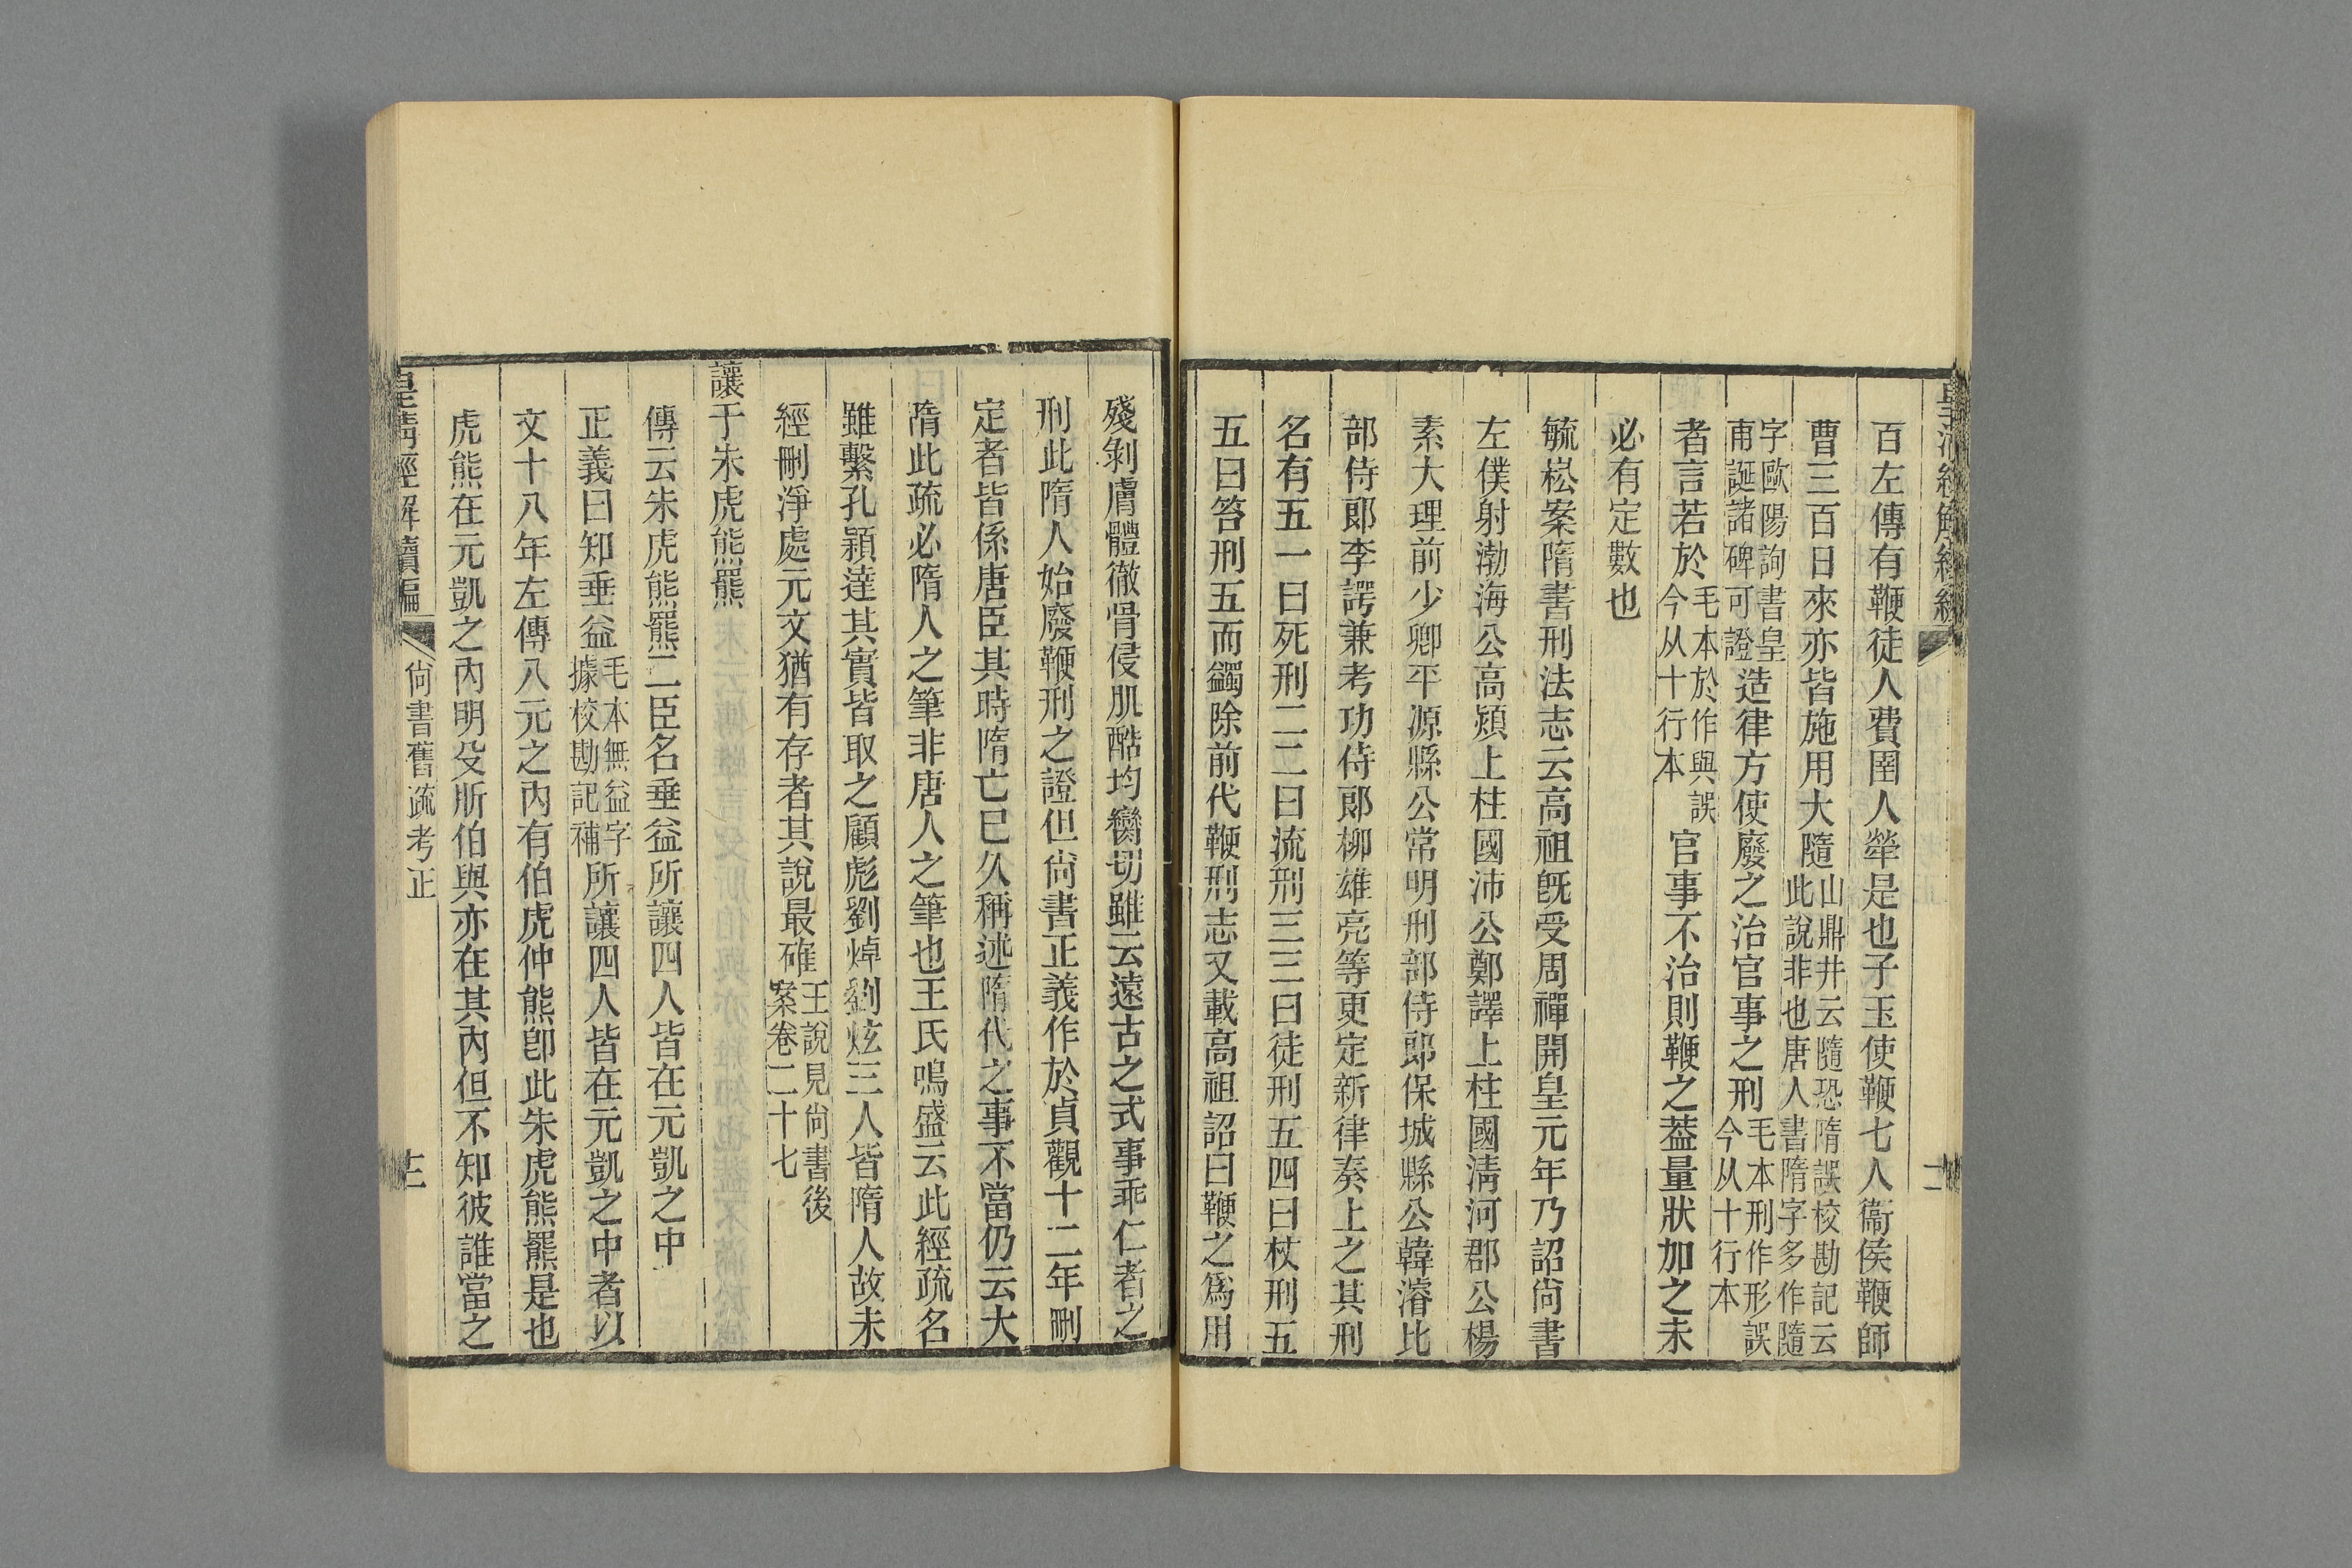 百左傳有鞭徒人費圉人犖是也子玉使鞭七人衞侯鞭師
曹三百日來亦皆施用大隨山鼎井云隨恐隋誤校勘記云此說非也唐人書隋字多作隨
字歐陽詢書皇甫誕諸碑可證造律方使廢之治官事之刑毛本刑作形誤今从十行本
者言若於毛本於作與誤今从十行本官事不治則鞭之葢量狀加之未
必有定數也
毓崧案隋書刑法志云高祖旣受周禪開皇元年乃詔尙書
左僕射渤海公高熲上柱國沛公鄭譯上柱國淸河郡公楊
素大理前少卿平源縣公常明刑部侍郎保城縣公韓濬比
部侍郎李諤兼考功侍郎柳雄亮等更定新律奏上之其刑
名有五一曰死刑二二曰流刑三三曰徒刑五四曰杖刑五
五曰笞刑五而蠲除前代鞭刑志又載高祖詔曰鞭之爲用
殘剝膚體徹骨侵肌酷均臠切雖云遠古之式事乖仁者之
刑此隋人始廢鞭刑之證但尙書正義作於貞觀十二年刪
定者皆係唐臣其時隋亡已久稱述隋代之事不當仍云大
隋此疏必隋人之筆非唐人之筆也王氏鳴盛云此經疏名
雖繫孔穎達其實皆取之顧彪劉焯劉炫三人皆隋人故未
經刪淨處元文猶有存者其說最確王說見尙書後案卷二十七
讓于朱虎熊羆
傳云朱虎熊羆二臣名垂益所讓四人皆在元凱之中
正義曰知垂益毛本無益字據校勘記補所讓四人皆在元凱之中者以
文十八年左傳八元之內有伯虎仲熊卽此朱虎熊羆是也
虎熊在元凱之內明殳斨伯與亦在其內但不知彼誰當之
皇淸經解續編 尙書舊疏考正